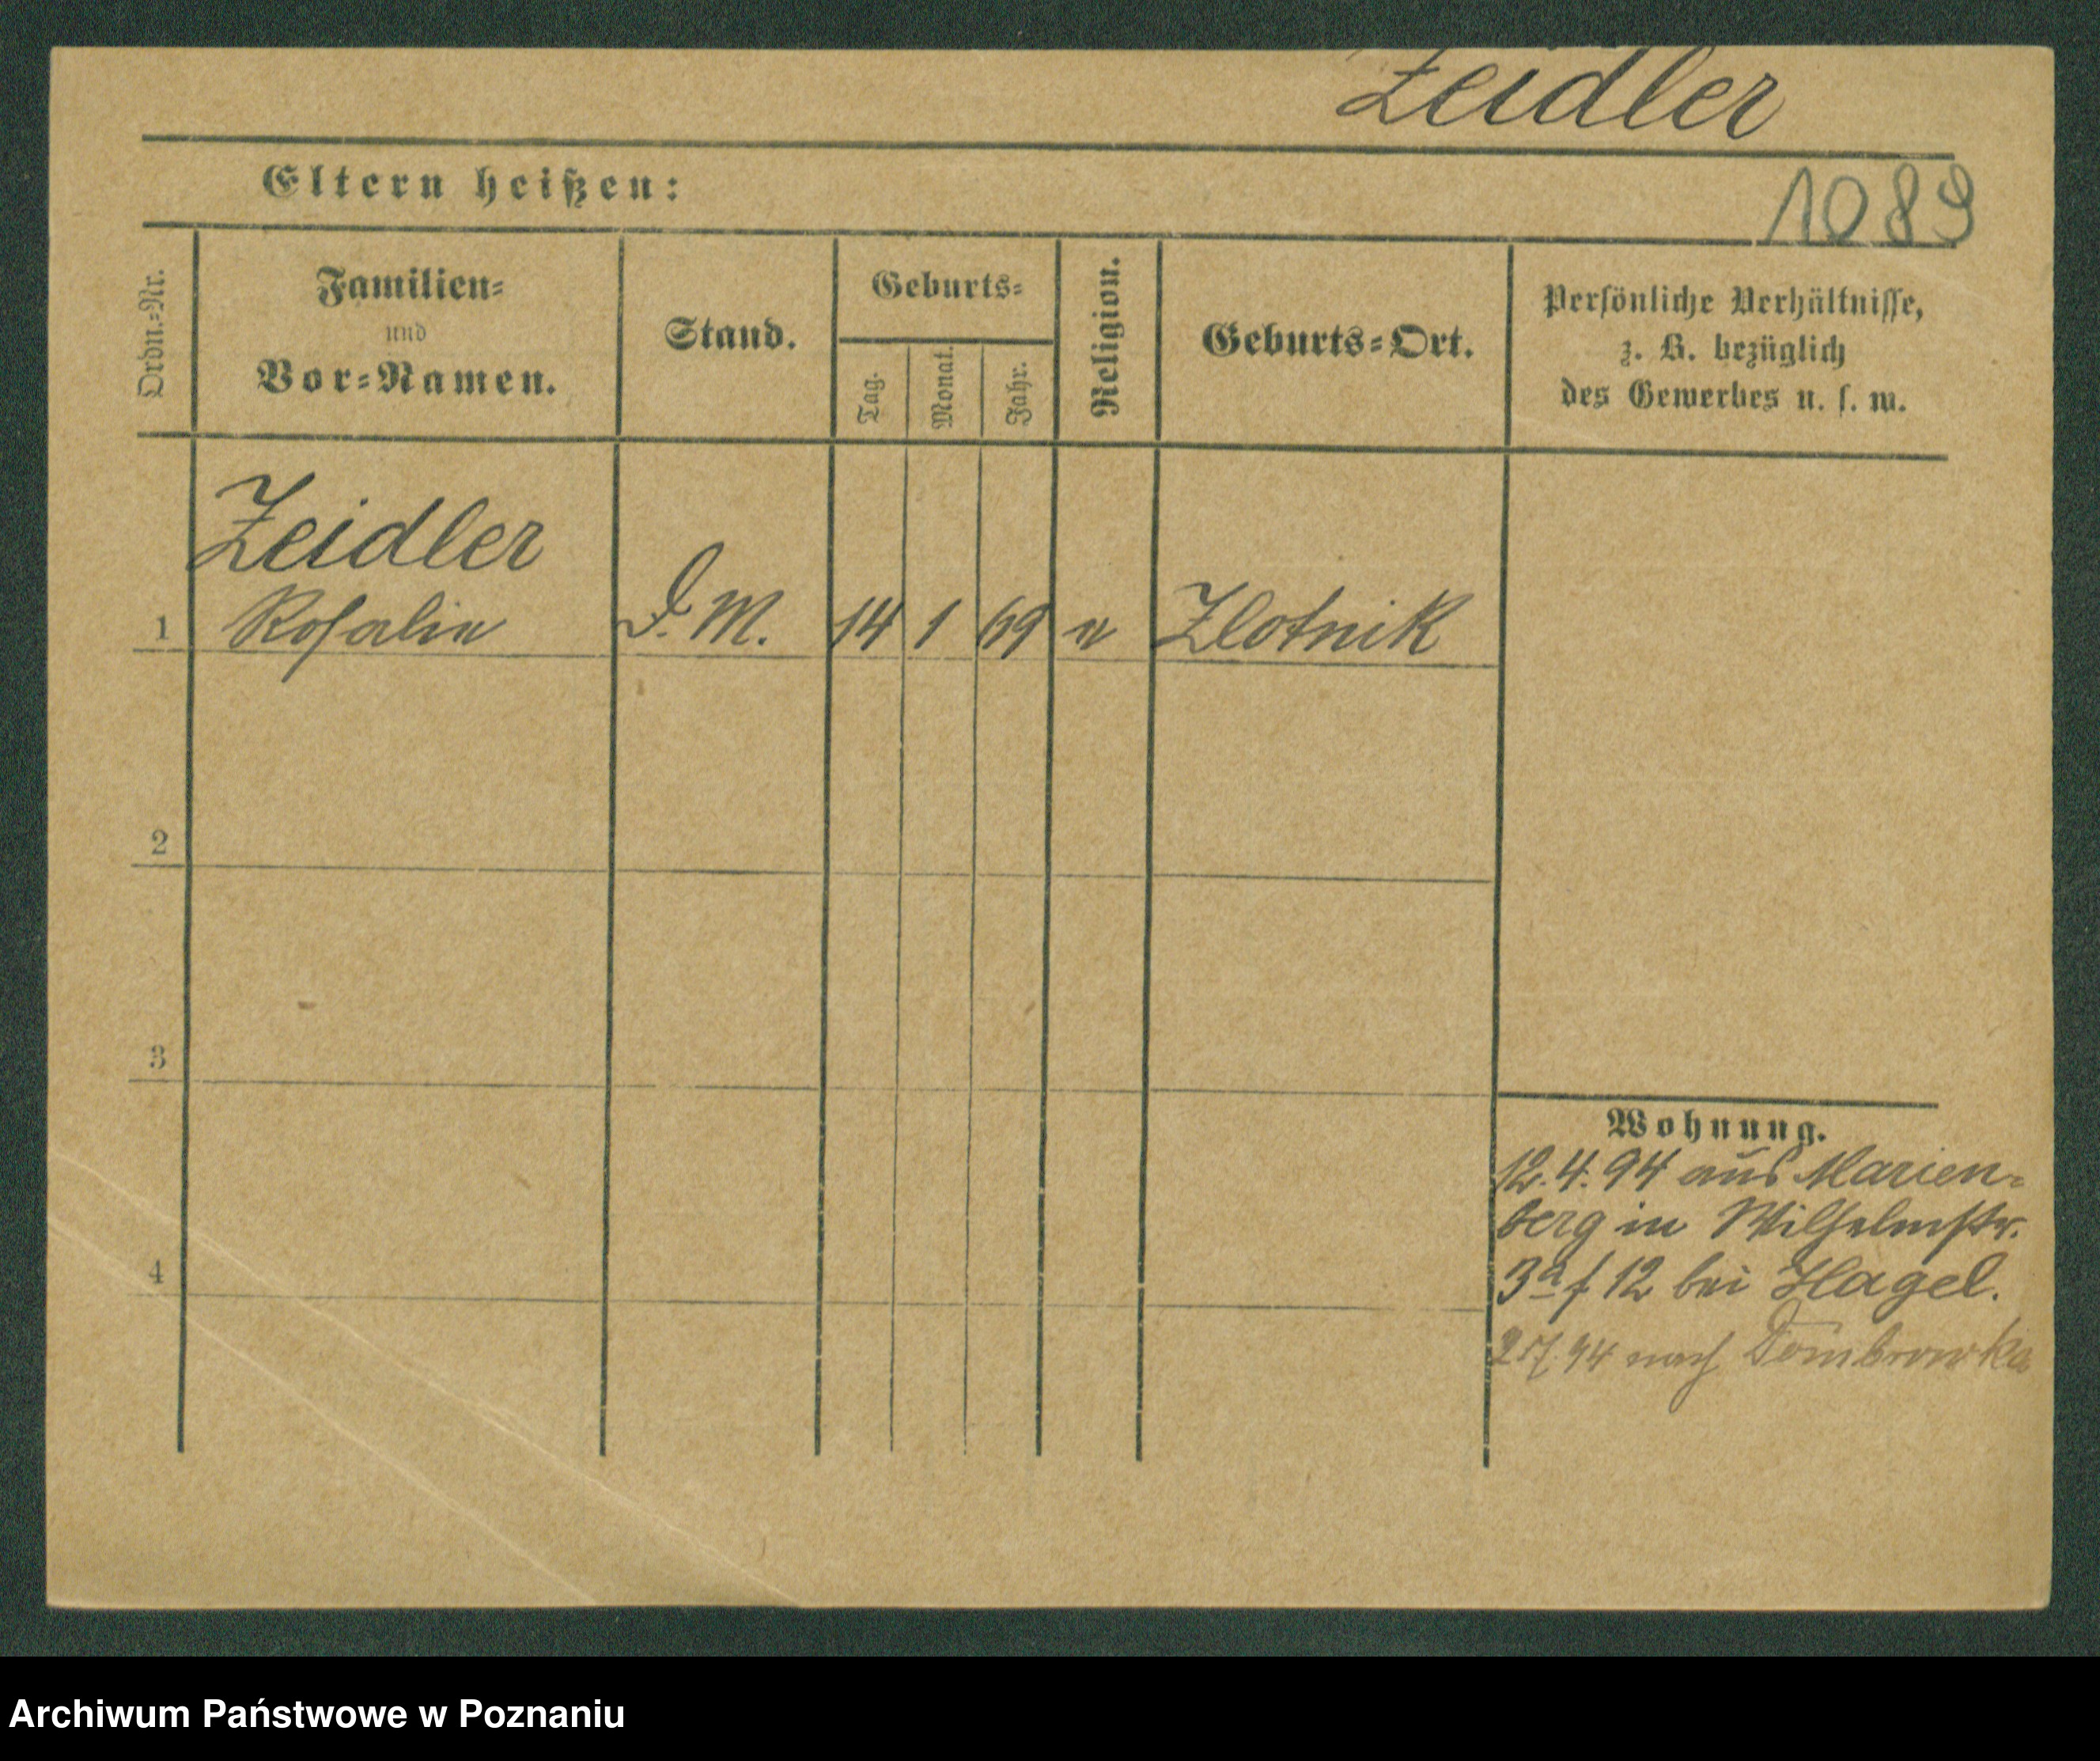 Zeidler
Eltern heißen:
1089
Ordn.-Nr.
Familien-
und
Vor-Namen.
Stand.
Geburts-
Tag.
Monat.
Jahr.
Religion.
Geburts-Ort.
Persönliche Verhältnisse,
z. B. bezüglich
des Gewerbes u. s. w.
Zeidler
1 Rosalie D. M. 14 1 69 Zlotnik
2
3
4
Wohnung.
12.4.94 aus Marien-
berg in Wilhelmstr.
3a f 12 bei Hagel.
94 nach Dombrowka
Archiwum Państwowe w Poznaniu